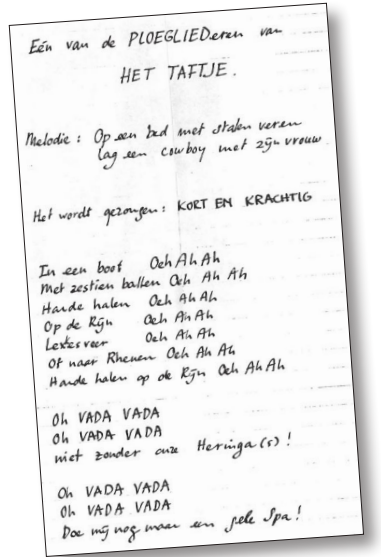 Eén van de PLOEGLIEDeren van
HET TAFTJE.
Melodie: Op een bed met stalen veren
lag een cowboy met zijn vrouw
Het wordt gezongen: KORT EN KRACHTIG
In een boot Oeh Ah Ah
Met zestien ballen Oeh Ah Ah
Harde halen Oeh Ah Ah
Op de Rijn Oeh Ah Ah
Lexkesveer Oeh Ah Ah
Of naar Rhenen Oeh Ah Ah
Harde halen op de Rijn Oeh Ah Ah
Oh VADA VADA
Oh VADA VADA
niet zonder onze Heringa(s)!
Oh VADA VADA
Oh VADA VADA
Doe mij nog maar een gele Spa!